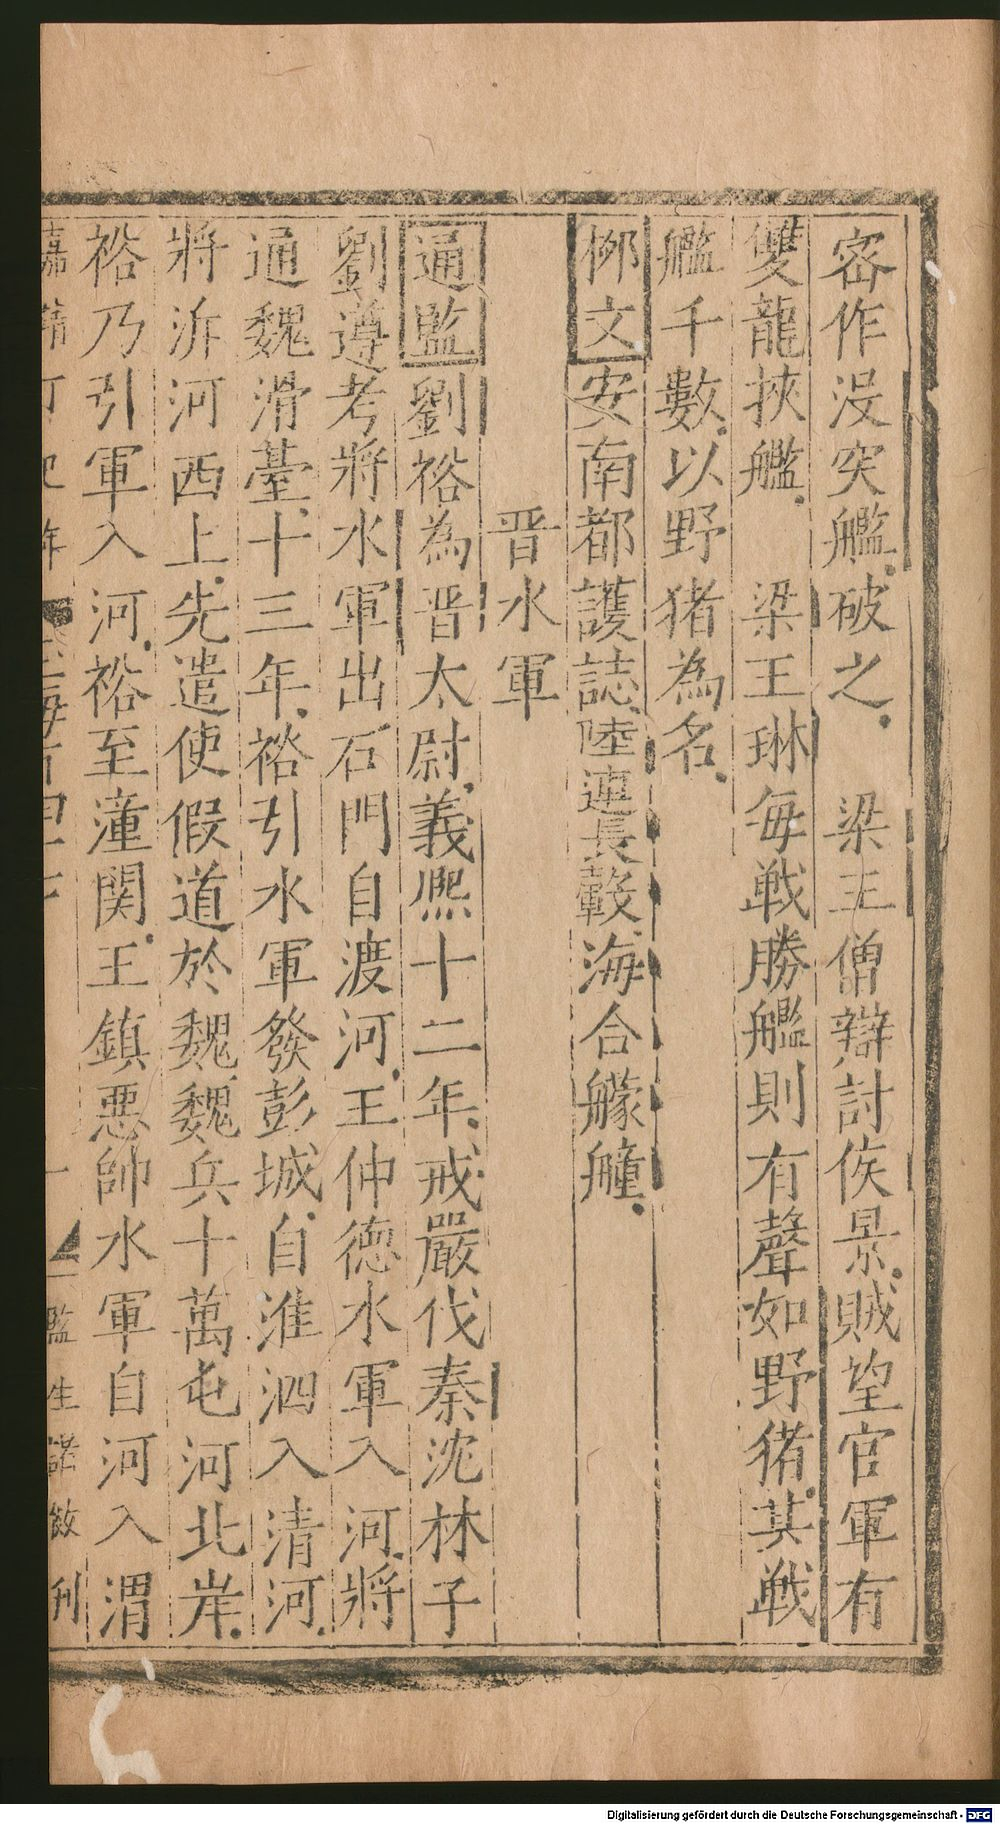 密作没突艦破之 梁王僧辯討侯景賊望官軍有
雙龍挾艦 梁王琳毎戦勝艦則有聲如野猪其戦
艦千數以野猪為名
栁文安南都護誌陸連長轂海合艨艟
晋水軍
通監劉裕為晋太尉義熈十二年戒嚴伐秦沈林子
劉遵考將水軍出石門自渡河王仲徳水軍入河將
通魏滑臺十三年裕引水軍發彭城自淮泗入清河
將泝河西上先遣使假道於魏魏兵十萬屯河北岸
裕乃引軍入河裕至潼関王鎮惡帥水軍自河入渭
嘉靖 年 監生 刋
Digitalisierung gefördert durch die Deutsche Forschungsgemeinschaft - DFG